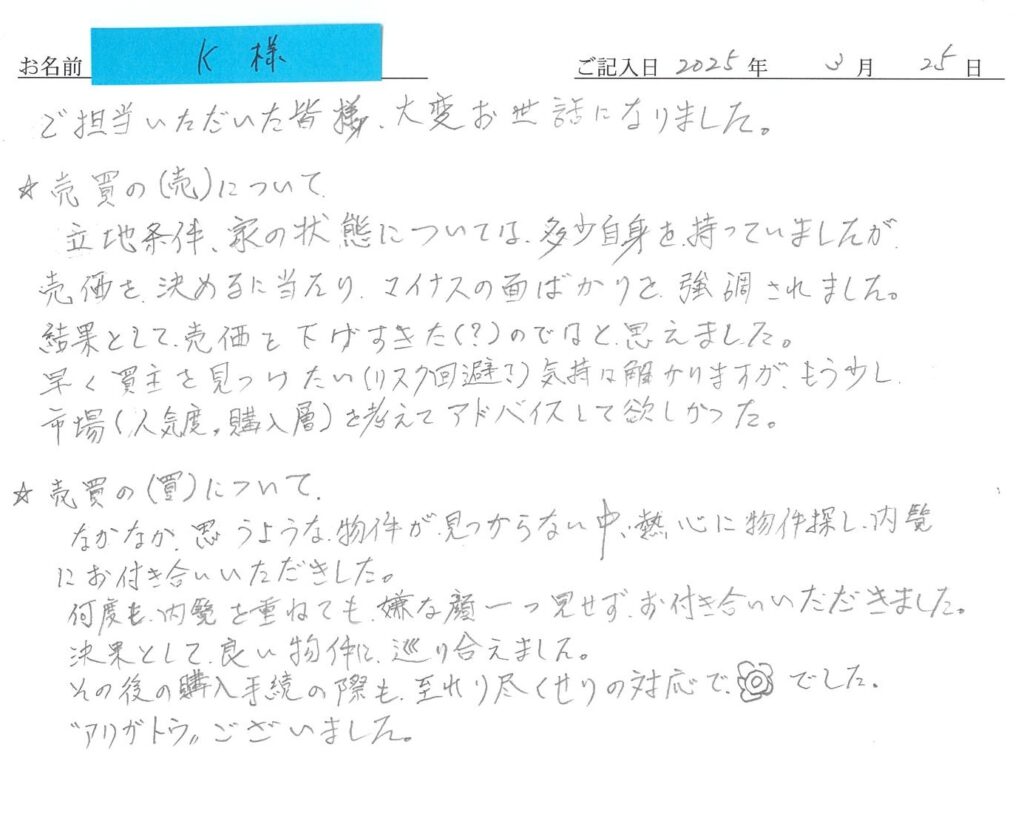 お名前 K 様 ご記入日 2025年 3月 25日
ご担当いただいた皆様、大変お世話になりました。
☆売買の(売)について
立地条件、家の状態については、多少自身を持っていましたが、
売価を、決めるに当たり、マイナスの面ばかりを、強調されました。
結果として、売価を下げすぎた(?)のではと、思えました。
早く買主を見つけたい(リスク回避?)気持は解かりますが、もう少し、
市場(人気度、購入層)を考えてアドバイスして欲しかった。
☆売買の(買)について、
なかなか、思うような、物件が、見つからない中、熱心に物件探し、内覧
にお付き合いいただきした。
何度も、内覧を重ねても、嫌な顔一つ見せず、お付き合いいただきました。
決果として、良い物件に、巡り合えました。
その後の購入手続の際も、至れり尽くせりの対応で、でした。
"アリガトウ"ございました。